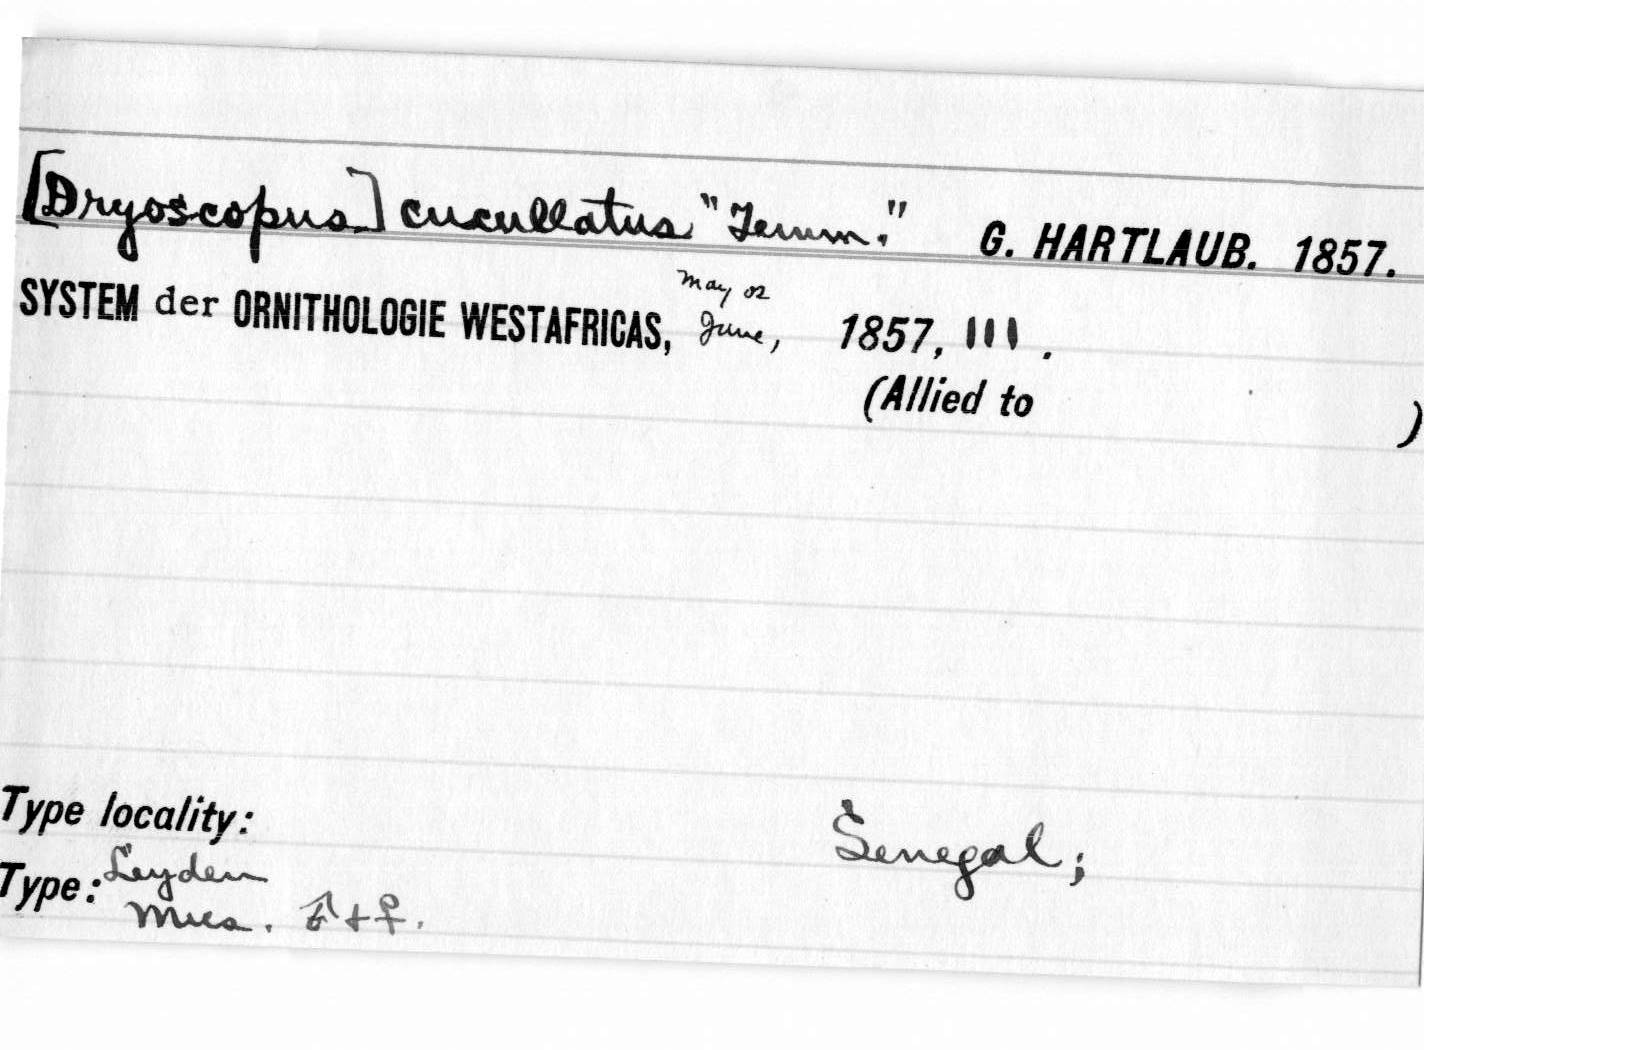 [Dryoscopus] cucullatus "Temm." G. HARTLAUB. 1857.
May or
SYSTEM der ORNITHOLOGIE WESTAFRICAS, June, 1857, 111.
(Allied to )
Type locality: Senegal;
Type: Leyden
Mus. ♂ + ♀.